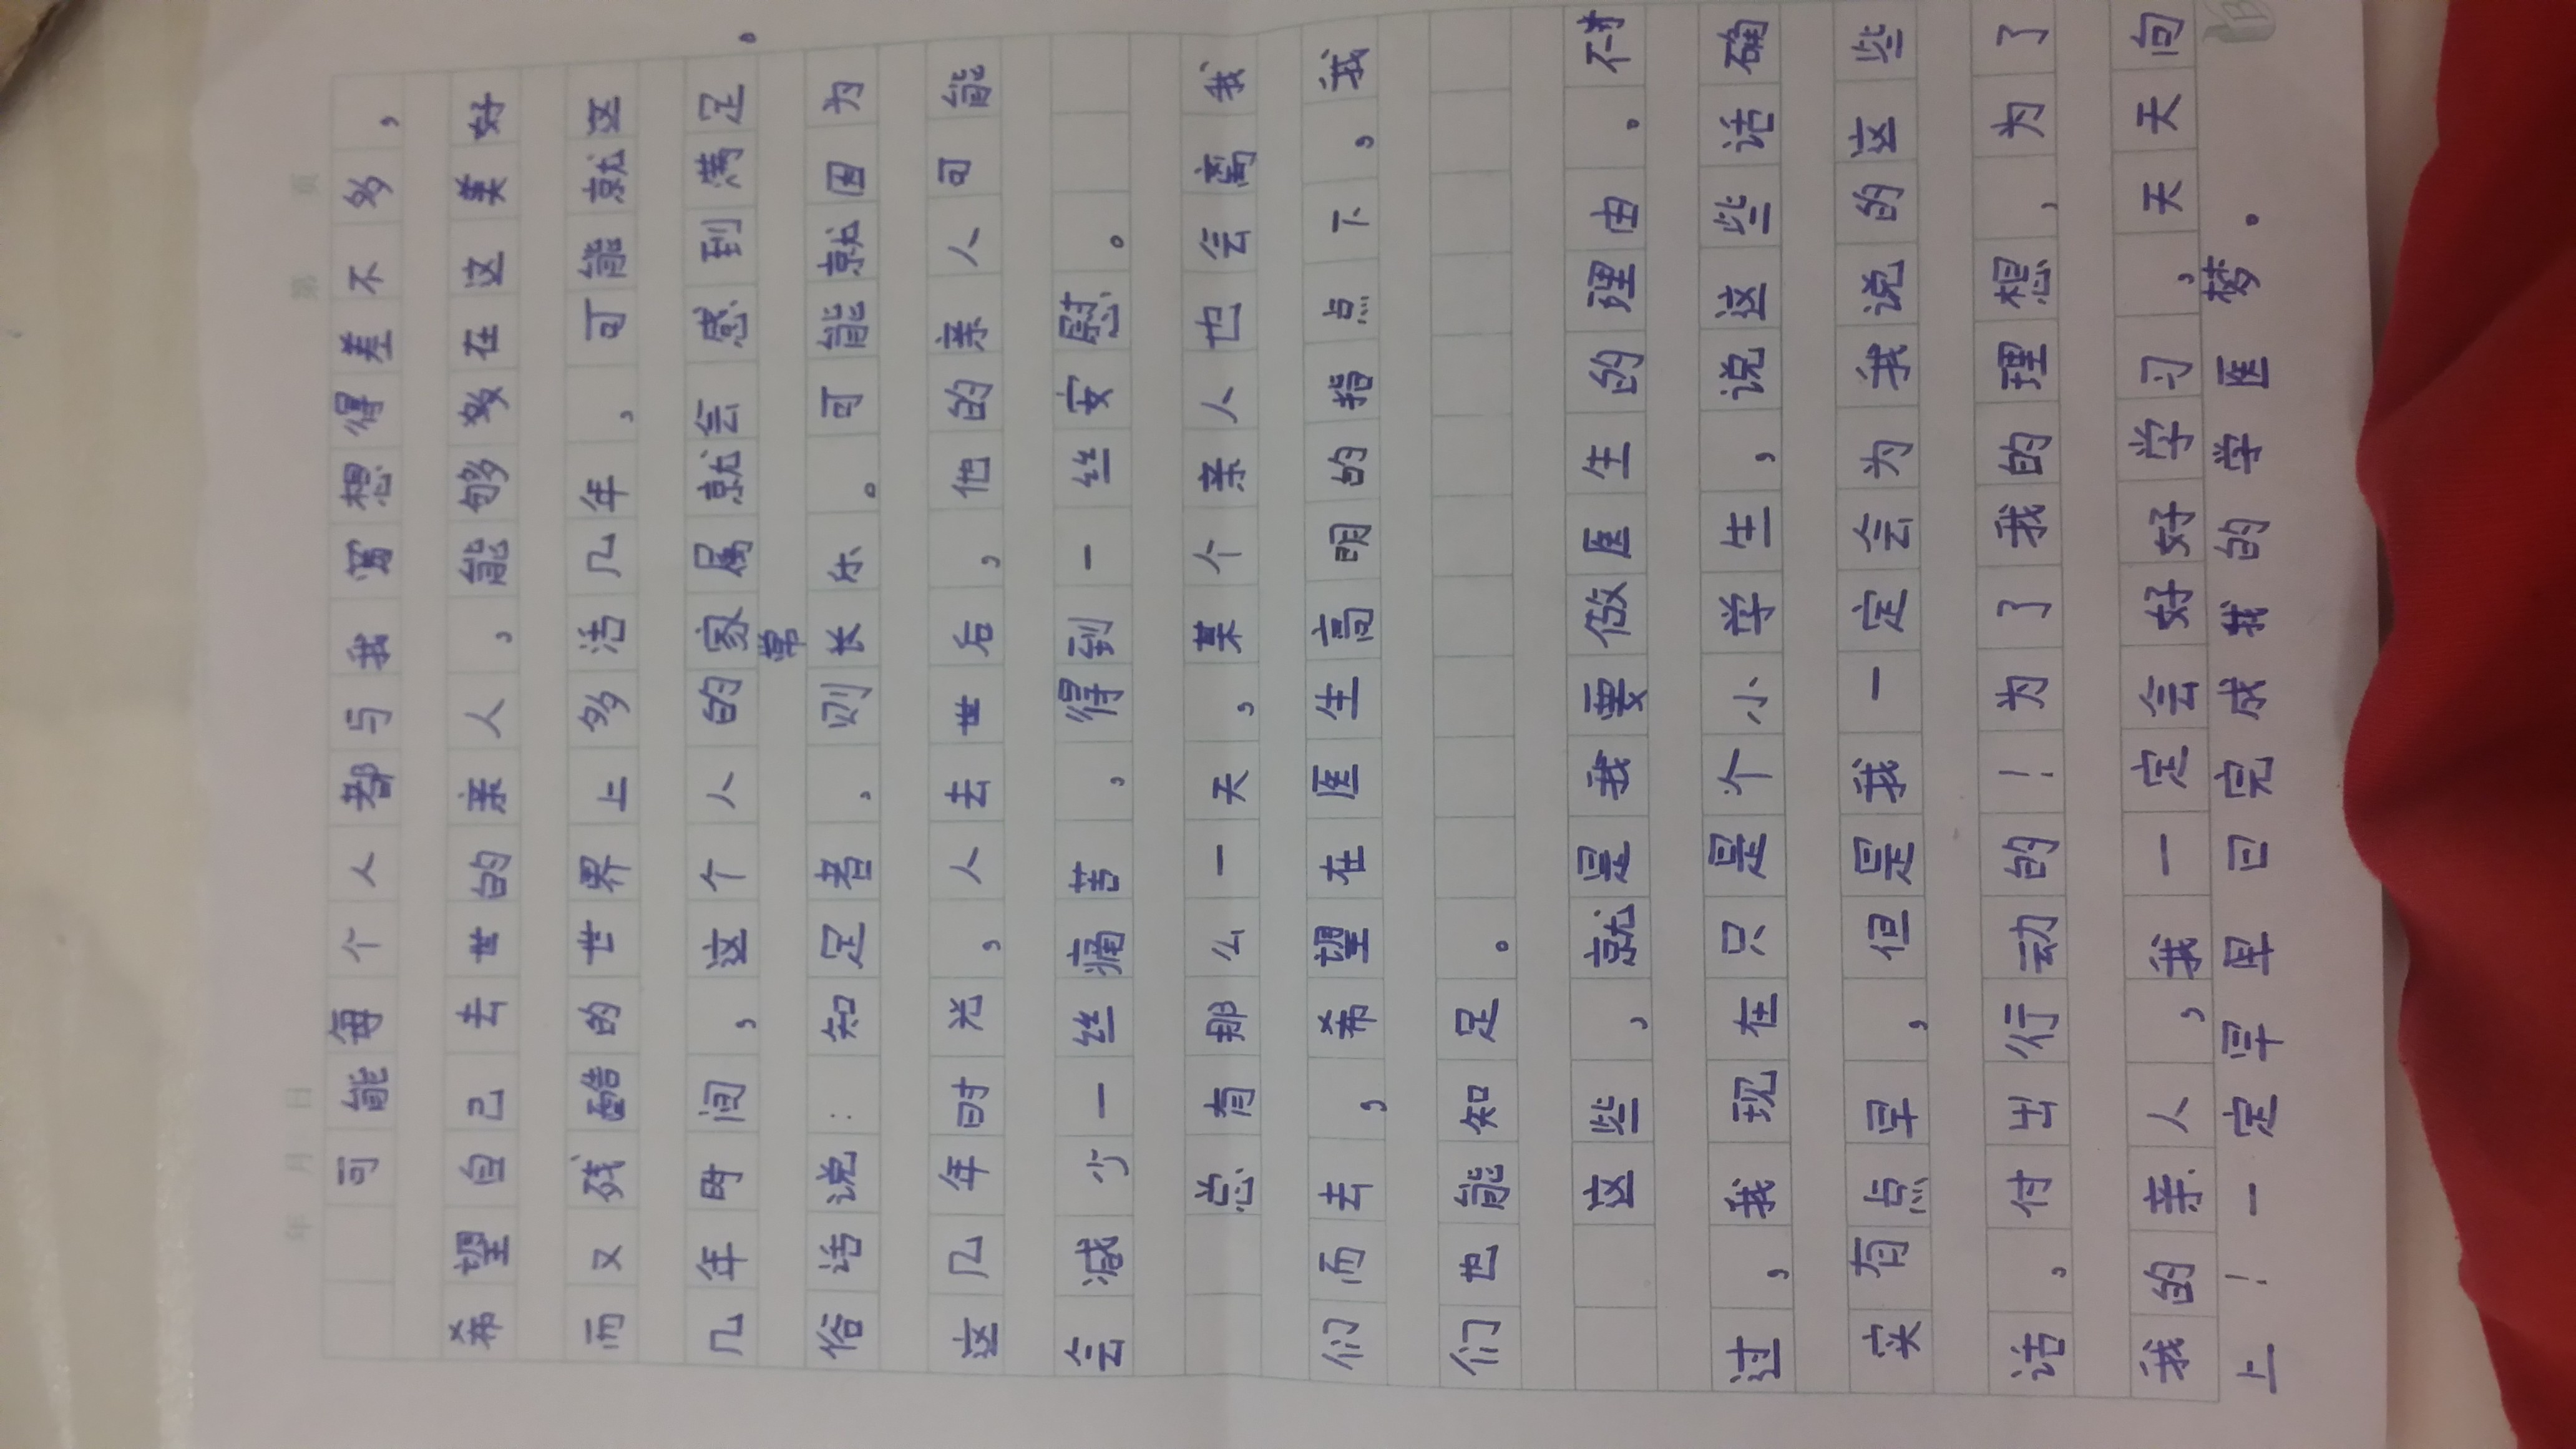 年 月 日 第 页
可能每个人都与我篱想得差不多，
希望自己去世的亲人，能够多在这美好
而又残酷的世界上多活几年，可能就这
几年时间，这个人的家属就会感到满足。
俗话说：知足者，则常长乐。可能就因为
这几年时光，人去世后，他的亲人可能
会减少一丝痛苦，得到一丝安慰。
总有那么一天，某个亲人也会离我
们而去，希望在医生高明的指点下，我
们也能知足。
这些，就是我要做医生的理由。不
过，我现在只是个小学生，说这些话确
实有点早，但是我一定会为我说的这些
话，付出行动的！为了我的理想，为了
我的亲人，我一定会好好学习，天天向
上！一定早早日完成我的学医梦。